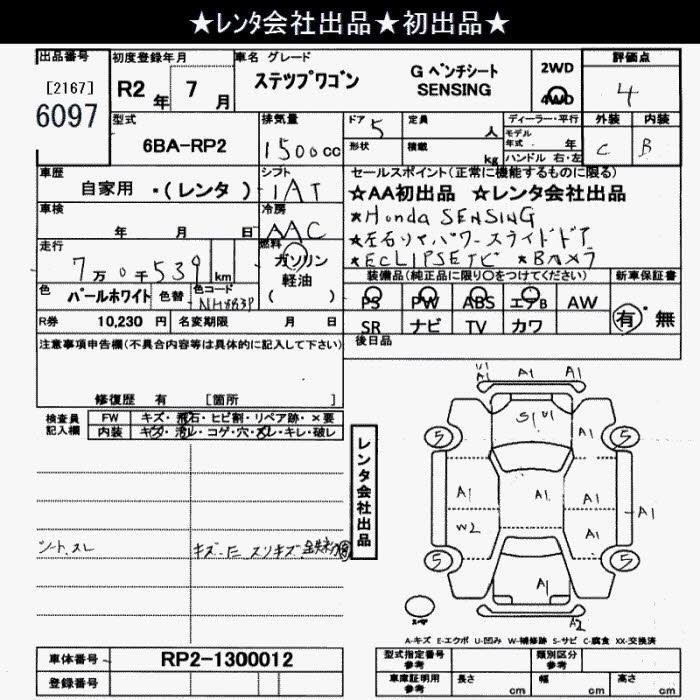 ★レンタ会社出品★初出品★
出品番号 初度登録年月 車名 グレード 評価点
[2167] R2 年 7 月 ステップワゴン G ベンチシート SENSING 2WD 4WD 4
6097
型式 排気量 ドア 5 定員 人 ディーラー・平行 外装 内装
6BA-RP2 1500 cc 形状 積載 kg モデル年式 年 C B
ハンドル 右・左
車歴 シフト セールスポイント(正常に機能するものに限る)
自家用 ・(レンタ) IAT ☆AA初出品 ☆レンタ会社出品
車検 冷房 ★Honda SENSING
年 月 日 AAC ★左右リヤパワースライドドア
走行 燃料 ★ECLIPSEナビ ★Bカメラ
7万0千539 km ガソリン 軽油 ( ) 装備品(純正品に限り○をつけてください) 新車保証書
色 パールホワイト 色替 色コード NH883P PS PW ABS エアB AW 有・無
R券 10,230 円 名変期限 月 日 SR ナビ TV カワ
注意事項申告欄(不具合内容等は具体的に記入して下さい) 後日品
修復歴 有 [箇所 ]
検査員記入欄 FW キズ・飛石・ヒビ割・リペア跡・×要
内装 キズ・汚レ・コゲ・穴・スレ・キレ・破レ
レンタ会社出品
U1
A1 A1 A1
S1 U1 A1
5 5
A1 A1 A1
W2 A1 A1
5 5
A1
A2
シート、スレ
スペア
A-キズ E-エクボ U-凹み W-補修跡 S-サビ C-腐食 XX-交換済
車体番号 RP2-1300012 型式指定番号 参考 類別区分 参考
登録番号 車庫証明用 参考 長さ cm 幅 cm 高さ cm